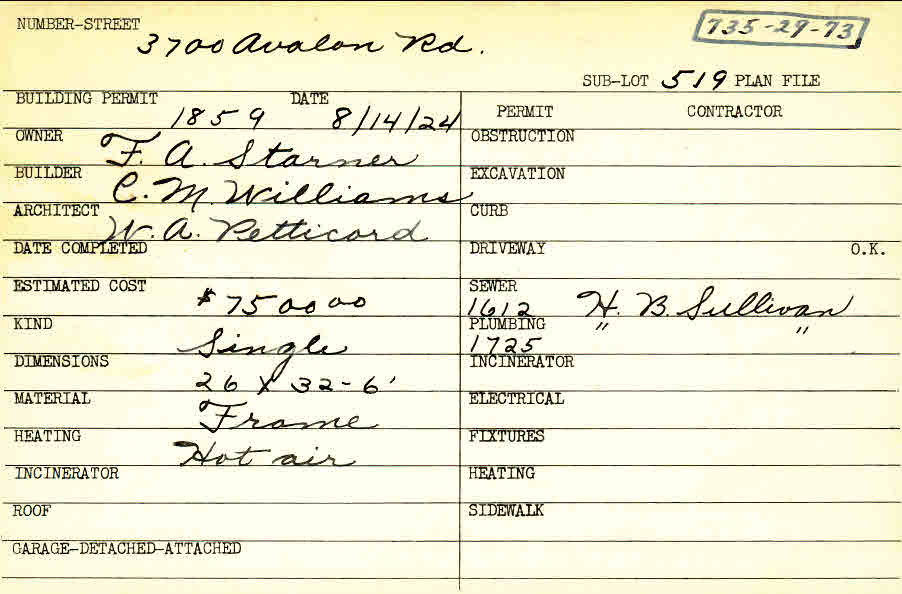 NUMBER-STREET
3700 Avalon Rd.
735-29-73
SUB-LOT 519 PLAN FILE
BUILDING PERMIT DATE
1859 8/14/24
PERMIT CONTRACTOR
OWNER F. A. Starner
OBSTRUCTION
BUILDER C. M. Williams
EXCAVATION
ARCHITECT W. A. Petticord
CURB
DATE COMPLETED
DRIVEWAY O.K.
ESTIMATED COST $7500 00
SEWER
1612 H. B. Sullivan
KIND Single
PLUMBING " "
1725
DIMENSIONS 26 X 32-6'
INCINERATOR
MATERIAL Frame
ELECTRICAL
HEATING Hot air
FIXTURES
INCINERATOR
HEATING
ROOF
SIDEWALK
GARAGE-DETACHED-ATTACHED